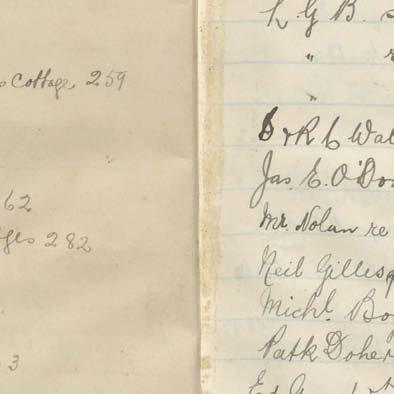 Cottage 259
62
ges 282
3
L. G. B.
"
"
& R C Wal
Jas. E. O'Don
Mr. Nolan re
Neil Gillesp
Michl. Bo
Patk Doher